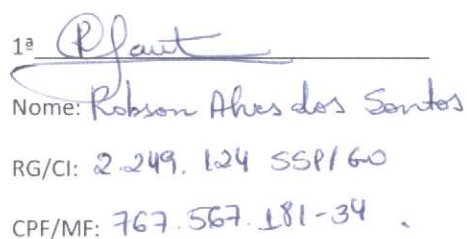 1ª
Nome: Robson Alves dos Santos
RG/CI: 2.249.124 SSP/GO
CPF/MF: 767.567.181-34.